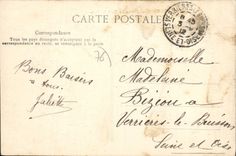 CARTE POSTALE
Correspondance
Tous les pays étrangers n'acceptent pas la
correspondance au recto, se renseigner à la poste
Bons Baisers
à tous.
Juliette
Mademoiselle
Madeleine
Bizion à
Verrières le Buisson
Seine et Oise